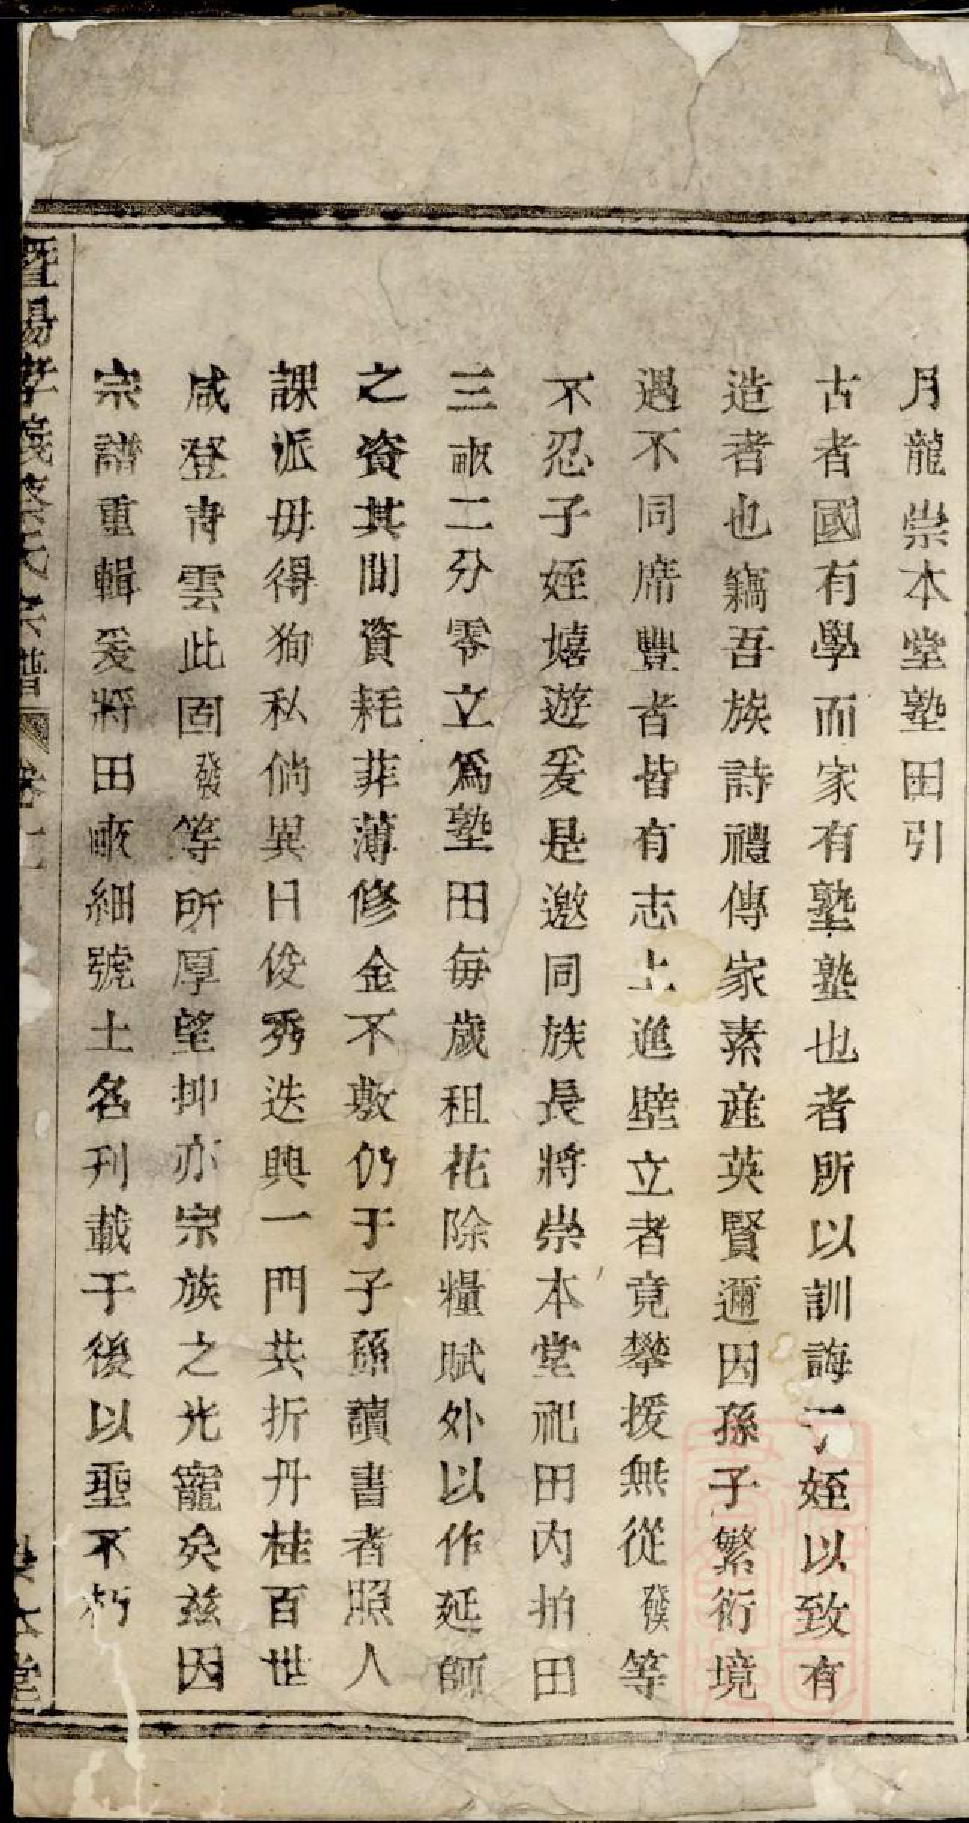 月龍崇本堂塾田引
古者國有學而家有塾塾也者所以訓誨子姪以致有
造者也竊吾族詩禮傳家素產英賢邇因孫子繁衍境
遇不同席豐者皆有志上進壁立者竟攀援無從發等
不忍子姪嬉遊爰是邀同族長將崇本堂祀田內拍田
三畝二分零立爲塾田每歲租花除糧賦外以作延師
之資其間資耗菲薄修金不敷仍于子孫讀書者照人
課派毋得狥私倘異日俊秀迭興一門共折丹桂百世
咸登青雲此固發等所厚望抑亦宗族之光寵矣茲因
宗譜重輯爰將田畝細號土名刊載于後以垂不朽
暨陽孝義蔡氏宗譜 卷 本堂